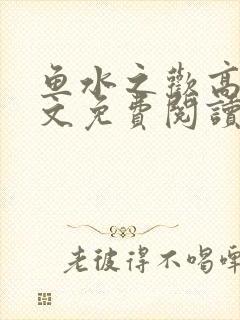 鱼水之歡高
文免費閱讀
老彼得不喝啤